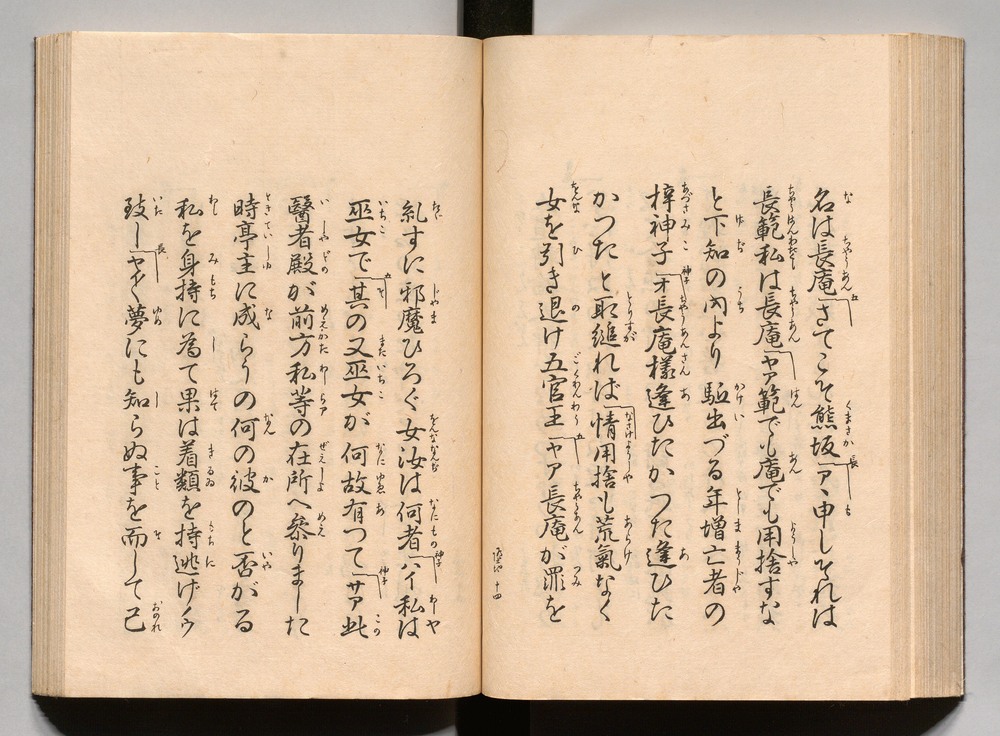 名は長庵「さてこそ熊坂「アヽ申しそれは
長範私は長庵「ヤア範でも庵でも用捨すな
と下知の内より駈出づる年増亡者の
梓神子「オ長庵様逢ひたかつた逢ひた
かつたと取縋れば「情用捨も荒氣なく
女を引き退け五官王「ヤア長庵が罪を
十四
糺すに邪魔ひろぐ女汝は何者「ハイ私は
巫女で「其の又巫女が何故有つて「サア此
醫者殿が前方私等の在所へ參りました
時亭主に成らうの何の彼のと否がる
私を身持に為て果は着類を持逃げ
致し「ヤヽ夢にも知らぬ事を而して己